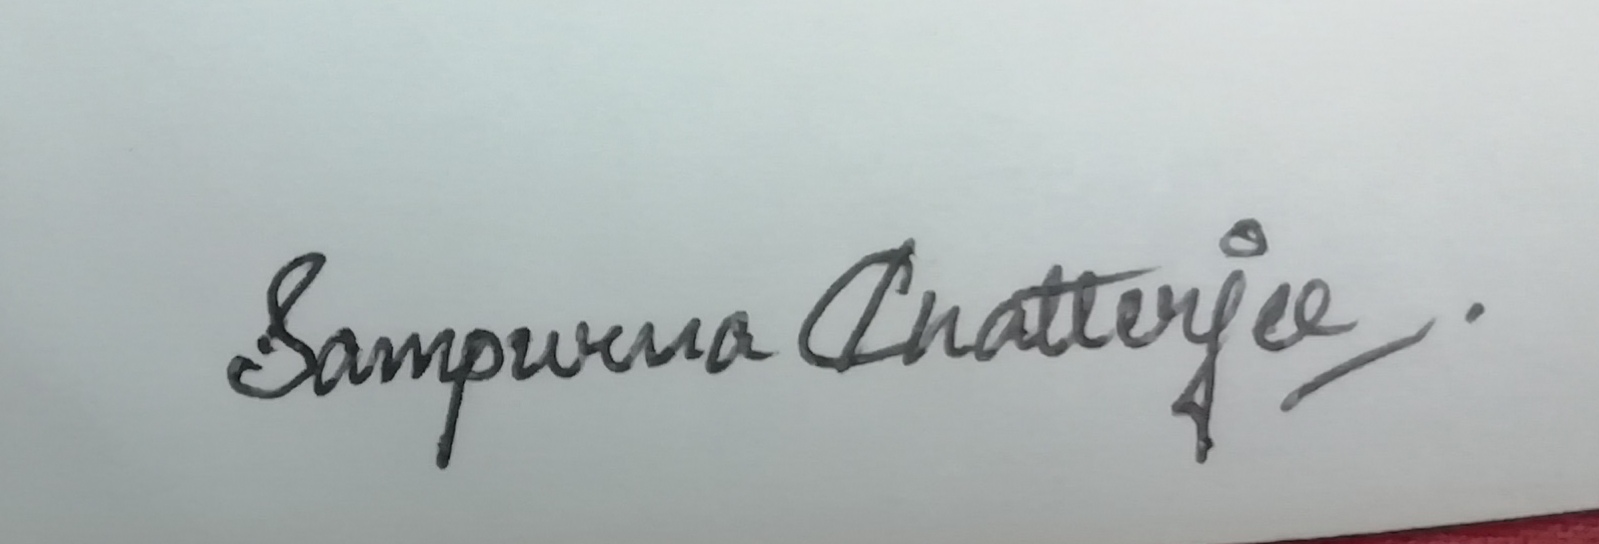 Sampurna Chatterjee.